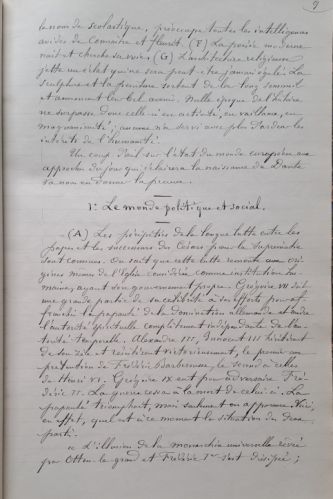 9
le nom de scolastique, préoccupe toutes les intelligences
avides de connaître et fleurit. (F) La poésie moderne
naît et cherche sa voie. (G) L'architecture religieuse
jette un éclat qui ne sera peut-être jamais égalé. La
sculpture et la peinture sortent de la long sommeil
et annoncent un bel avenir. Nulle époque de l'histoire
ne surpasse donc celle-ci en activité, en vaillance, en
magnanimité ; aucune n'a servi avec plus d'ardeur les
intérêts de l'humanité.
Un coup d'œil sur l'état du monde européen aux
approches du jour qui éclairera la naissance de Dante
va nous en donner la preuve.
1º Le monde politique et social.
(A) Les péripéties de la longue lutte entre les
papes et les successeurs des Césars pour la suprématie
sont connues. On sait que cette lutte remonte aux ori-
gines mêmes de l'Église considérée comme institution hu-
maine, ayant son gouvernement propre. Grégoire VII doit
une grande partie de sa célébrité à ses efforts pour af-
franchir la papauté de la domination allemande et rendre
l'autorité spirituelle complètement indépendante de l'au-
torité temporelle. Alexandre III, Innocent III héritèrent
de son zèle et résistèrent victorieusement, le premier aux
prétentions de Frédéric Barberousse, le second à celles
de Henri VI. Grégoire IX eut pour adversaire Fré-
déric II. La guerre cessa à la mort de celui-ci. La
papauté triomphait, mais seulement en apparence. Voici,
en effet, quelle est à ce moment la situation des deux
partis.
« L'illusion de la monarchie universelle rêvée
par Othon le grand et Frédéric Ier s'est dissipée ;